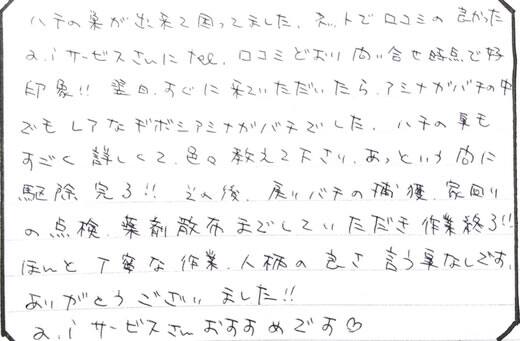 ハチの巣が出来て困ってました。ネットで口コミの良かった
a.iサービスさんにTEL、口コミどおり問い合せ時点で好
印象!! 翌日、すぐに来ていただいたら、アシナガバチの中
でもレアなキボシアシナガバチでした。ハチの事も
すごく詳しくて、色々教えて下さり、あっという間に
駆除完了!! その後、戻りバチの捕獲、家回り
の点検、薬剤散布までしていただき作業終了!!
ほんと丁寧な作業、人柄の良さ言う事なしです。
ありがとうございました!!
a.iサービスさんおすすめです♡